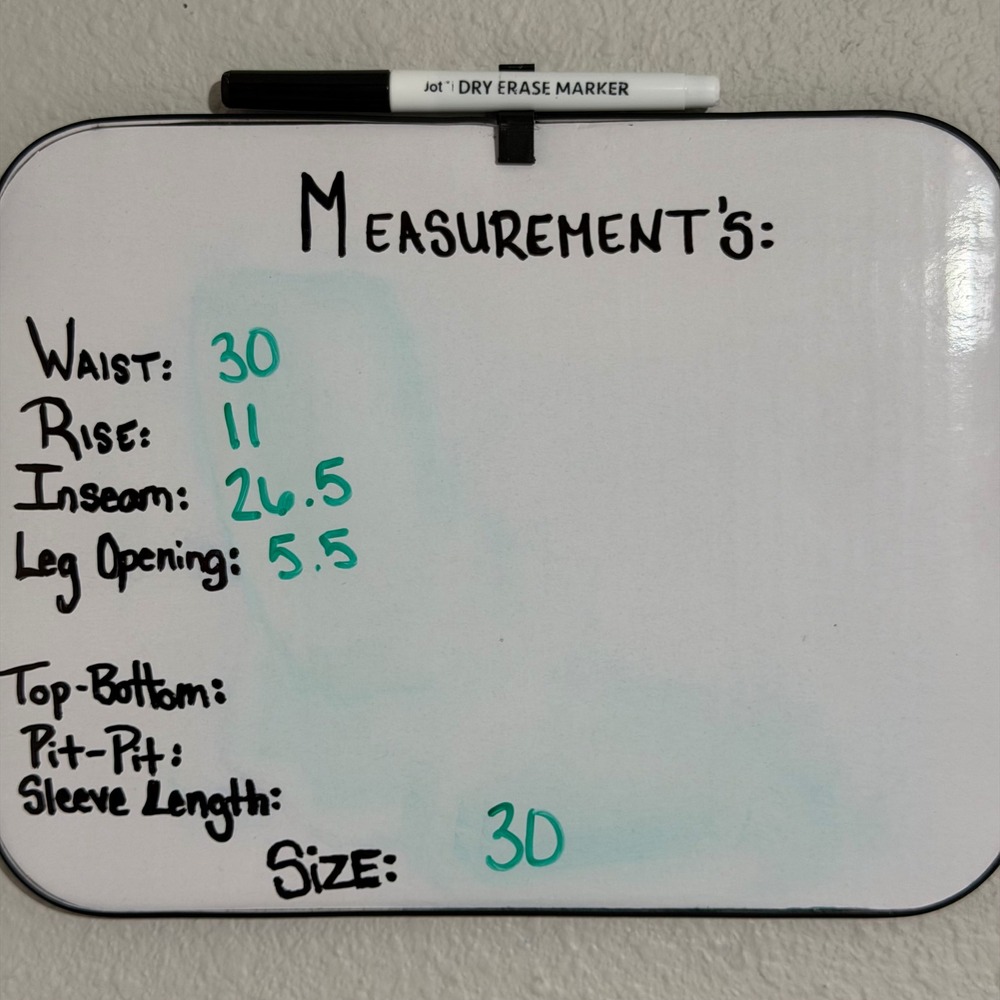 Jot™ DRY ERASE MARKER
MEASUREMENT'S:
WAIST: 30
RISE: 11
Inseam: 26.5
Leg Opening: 5.5
Top-Bottom:
Pit-Pit:
Sleeve Length:
SiZE: 30